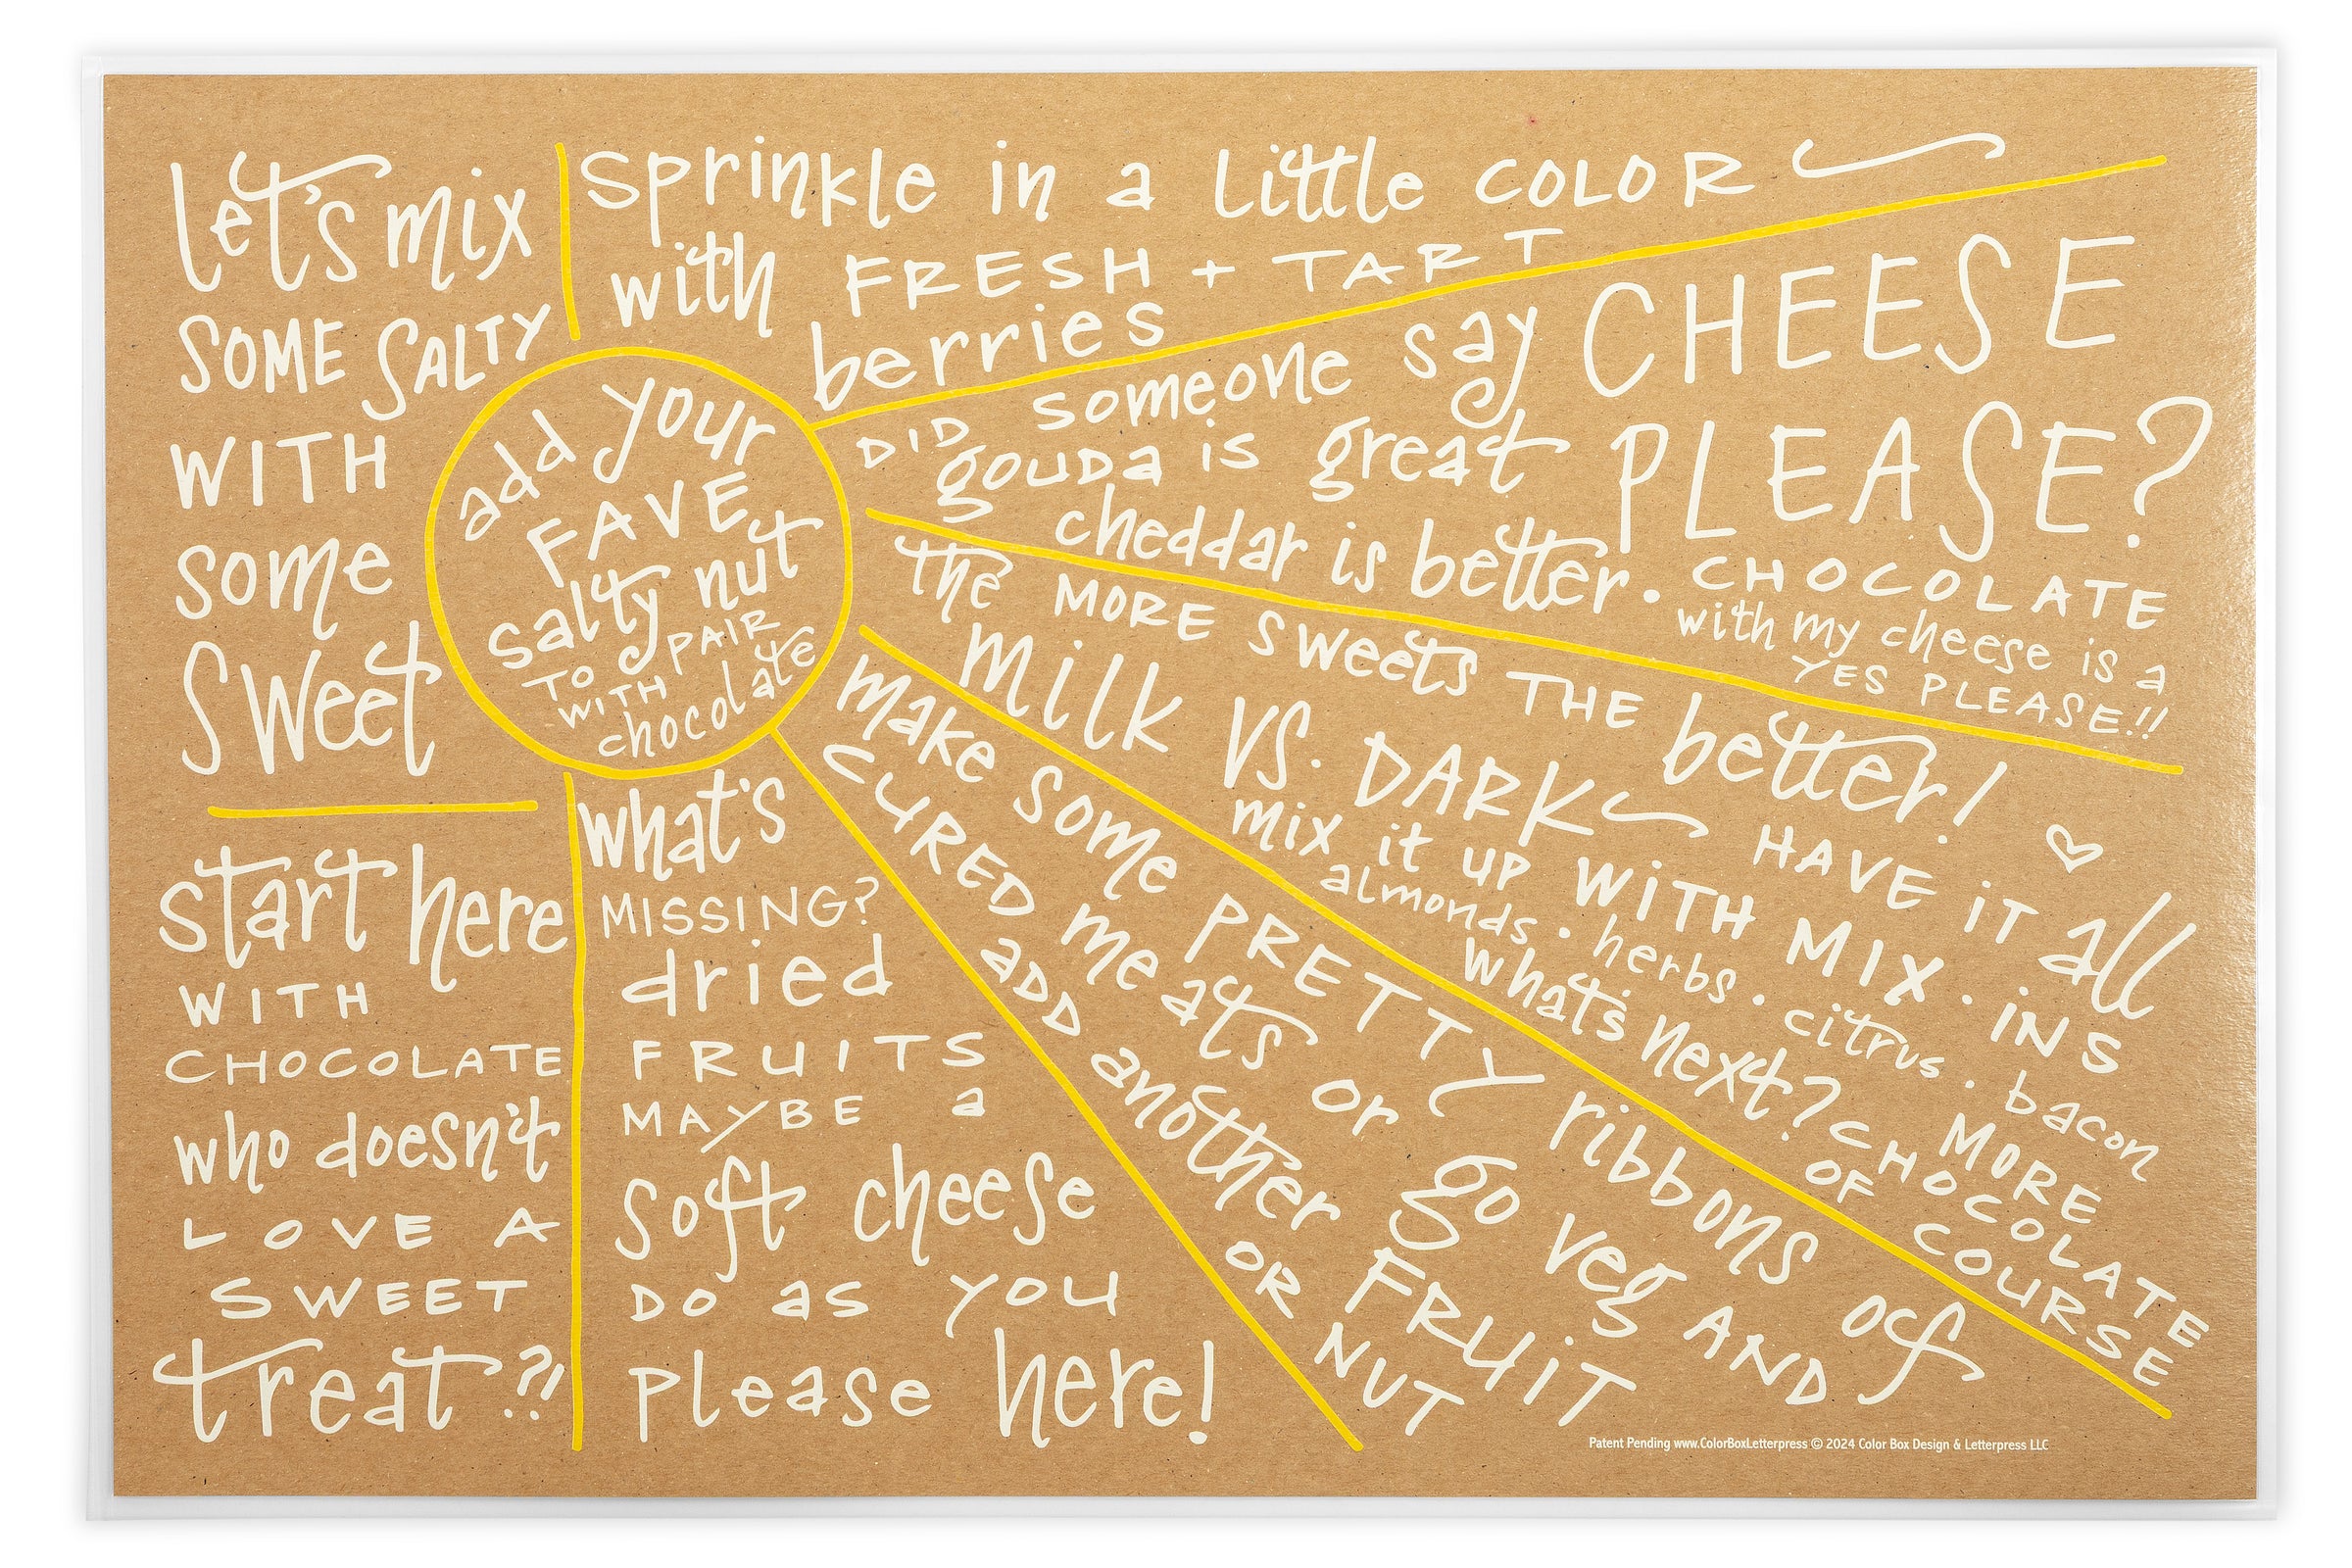 let's mix
SOME SALTY
WITH
some
sweet
sprinkle in a little COLOR
with FRESH + TART
berries
DID someone say CHEESE
PLEASE?
gouda is great
cheddar is better.
CHOCOLATE
with my cheese is a
YES PLEASE!!
add your
FAVE
salty nut
TO PAIR
WITH
chocolate
the MORE sweets THE better!
milk VS. DARK HAVE IT all
mix it up WITH MIX · INS
almonds · herbs · citrus · bacon
what's next? MORE
CHOCOLATE
OF COURSE
make some PRETTY ribbons of
CURED meats or go veg AND
ADD another FRUIT
OR NUT
what's
MISSING?
dried
FRUITS
MAYBE a
soft cheese
DO as you
please here!
start here
WITH
CHOCOLATE
who doesn't
LOVE A
SWEET
treat?!
Patent Pending www.ColorBoxLetterpress © 2024 Color Box Design & Letterpress LLC